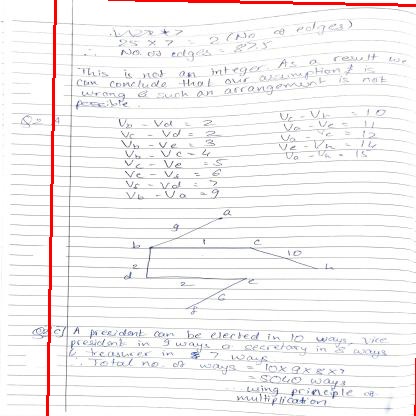 25 x 7 = 2 (No of edges)
∴ No of edges = 87.5
This is not an integer. As a result we
can conclude that our assumption is
wrong & such an arrangement is not
possible.
Vb - Vd = 2
Vc - Vd = 2
Vb - Ve = 3
Vb - Vc = 4
Vc - Ve = 5
Ve - Vf = 6
Vf - Vd = 7
Vb - Va = 9
Vc - Vh = 10
Va - Ve = 11
Va - Vc = 12
Ve - Vh = 14
Va - Vh = 15
a
9
b 1 c
10
2 h
d 2 e
6
f
c) A president can be elected in 10 ways, vice
president in 9 ways a secretary in 8 ways
& treasurer in 7 ways
∴ Total no. of ways = 10 x 9 x 8 x 7
= 5040 ways
using principle of
multiplication